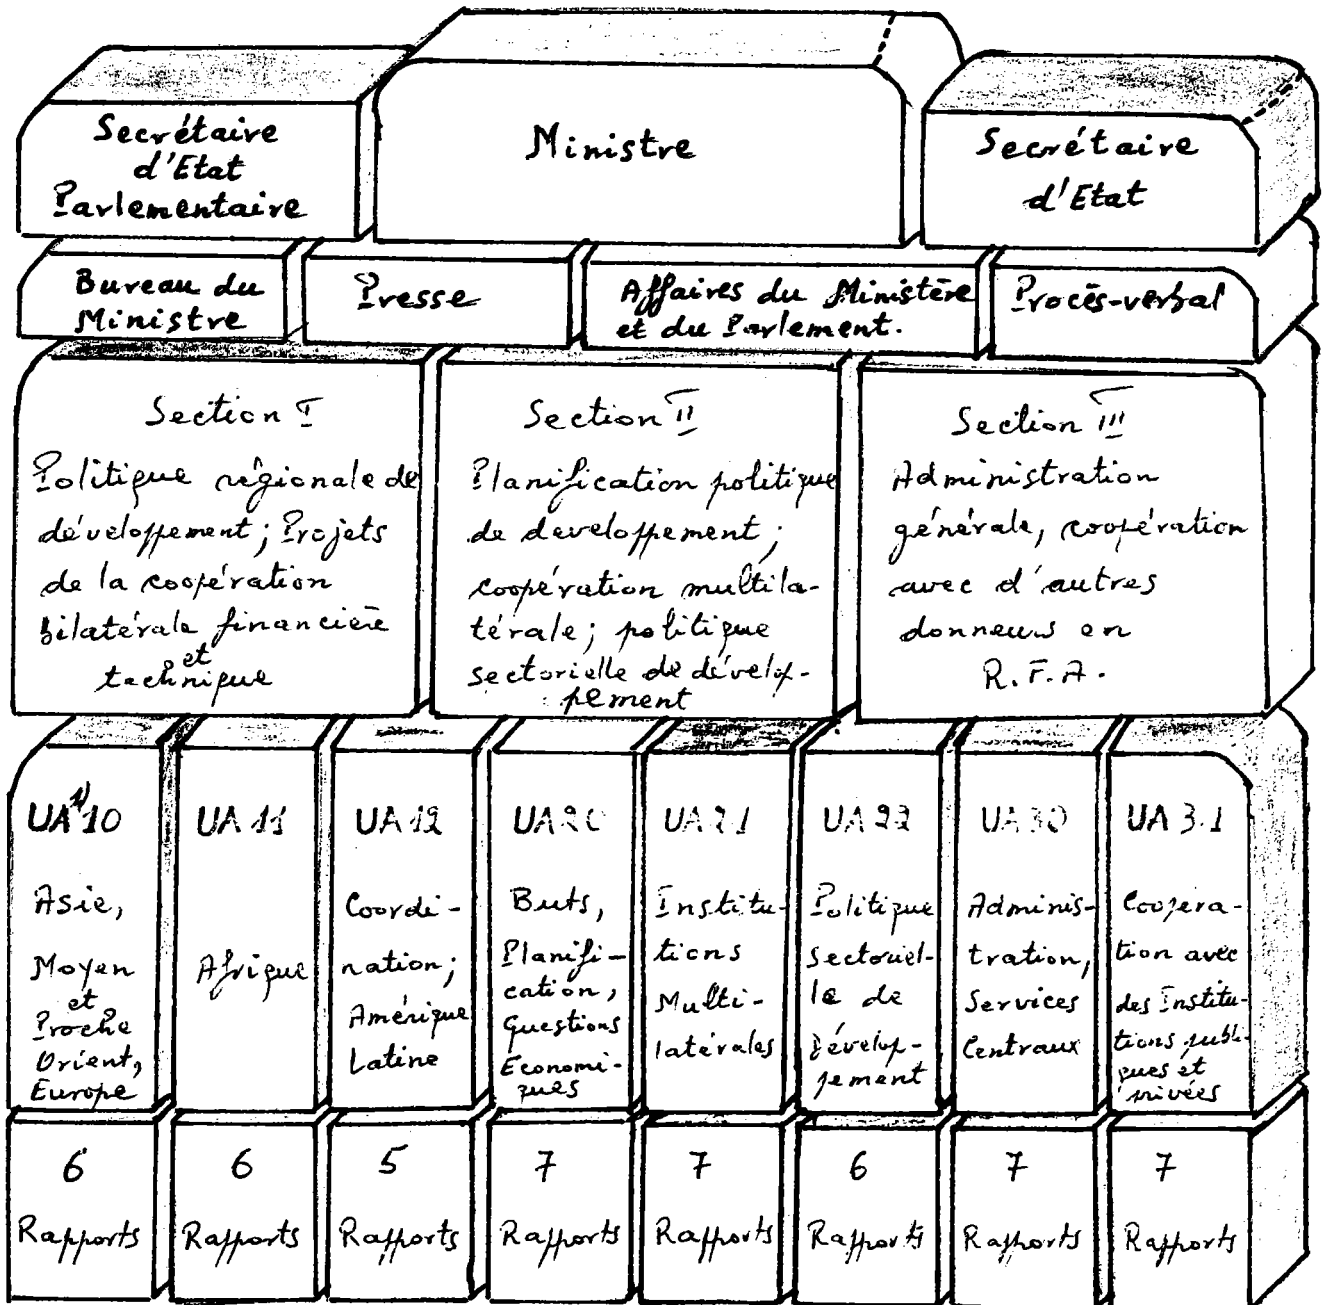 Secrétaire
d'Etat
Parlementaire
Ministre
Secrétaire
d'Etat
Bureau du
Ministre
Presse
Affaires du Ministère
et du Parlement.
Procès-verbal
Section I
Politique régionale de
développement; Projets
de la coopération
bilatérale financière
et
technique
Section II
Planification politique
de developpement;
coopération multila-
térale; politique
sectorielle de dévelop-
pement
Section III
Administration
générale, coopération
avec d'autres
donneurs en
R.F.A.
UA 1) 10
Asie,
Moyen
et
Proche
Orient,
Europe
UA 11
Afrique
UA 12
Coordi-
nation;
Amérique
Latine
UA 20
Buts,
Planifi-
cation,
Questions
Economi-
ques
UA 21
Institu-
tions
Multi-
latérales
UA 22
Politique
sectoriel-
le de
Dévelop-
pement
UA 30
Adminis-
tration,
Services
Centraux
UA 3.1
Coopera-
tion avec
des Institu-
tions publi-
ques et
privées
6
Rapports
6
Rapports
5
Rapports
7
Rapports
7
Rapports
6
Rapports
7
Rapports
7
Rapports